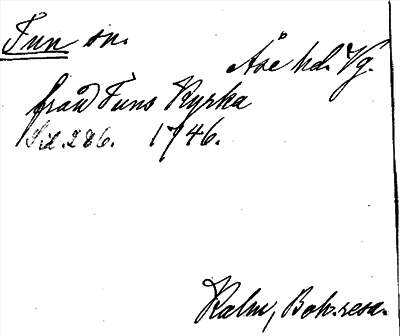 Tun sn.
Åse hd. Vg.
från Tuns Kyrka
Sid. 286. 1746.
Kalm, Boh. resa.